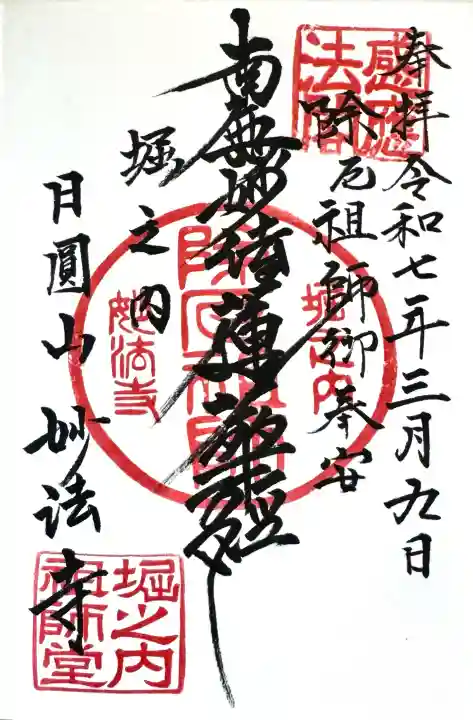 奉拝
令和七年三月九日
除厄祖師御奉安
南無妙法蓮華経
堀之内
日圓山
妙法寺
感應
法閣
堀之内
除厄祖師
妙法寺
堀之内
祖師堂